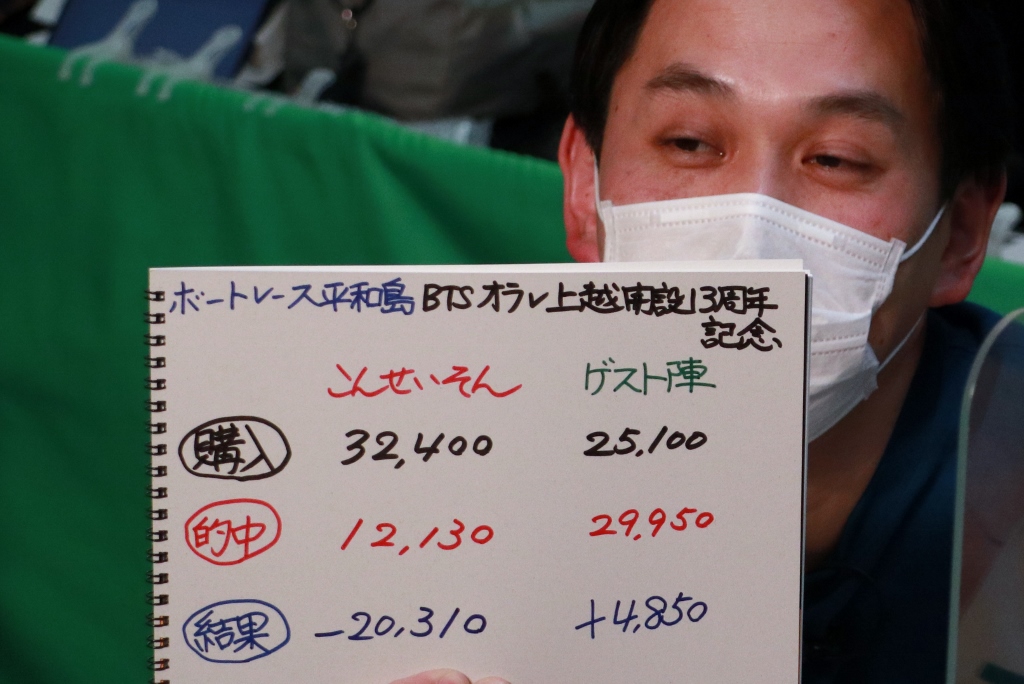 ボートレース平和島 BTSオラレ上越開設13周年
記念
こんせいそん ゲスト陣
購入 32,400 25,100
的中 12,130 29,950
結果 -20,310 +4,850